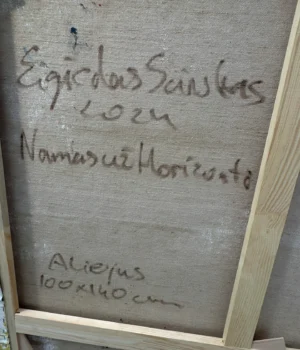 Eigirdas Scinskas
2024
Namas už Horizonto
Aliejus
100x140 cm